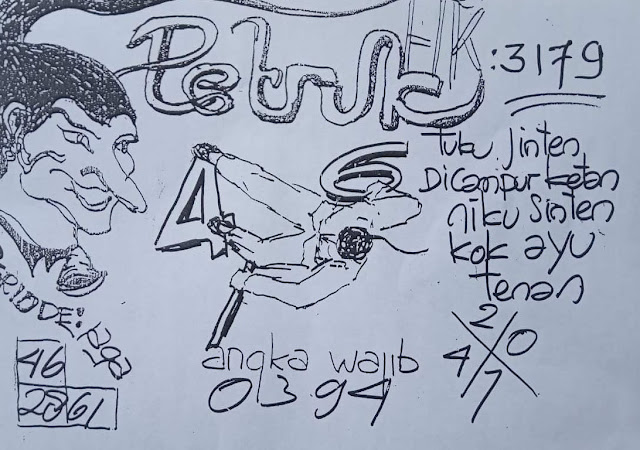 Petruk HK : 3179
Tuku Jinten
Dicampur ketan
niku Sinten
kok ayu
tenan
4 6
2
4 0
7
angka wajib
03.94
46
28 61